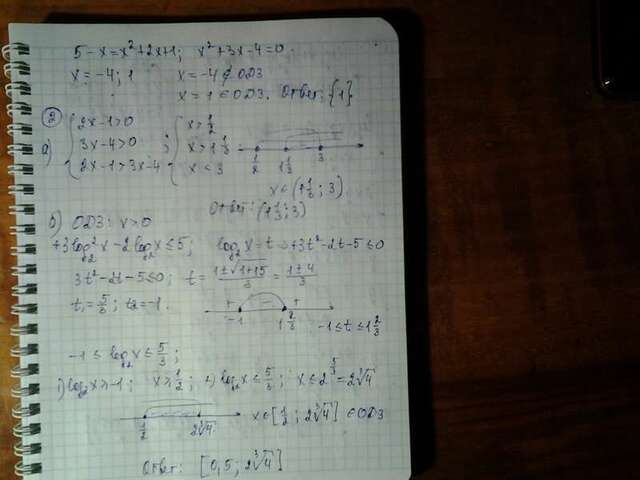 5-x=x²+2x+1; x²+3x-4=0
x=-4; 1 x=-4∉ОДЗ
x=1∈ОДЗ. Ответ: {1}.
2
а) {2x-1>0 ; {x>1/2
{3x-4>0 {x>1 1/3
{2x-1>3x-4 {x<3
1/2 1 1/3 3
x∈(1 1/3; 3)
Ответ: (1 1/3; 3)
б) ОДЗ: x>0
+3log₂²x-2log₂x≤5; log₂x=t ⇒ +3t²-2t-5≤0
3t²-2t-5≤0; t=(1±√(1+15))/3=(1±4)/3
t₁=5/3; t₂=-1.
+ - +
-1 1 2/3 -1≤t≤1 2/3
-1≤log₂x≤5/3;
1) log₂x≥-1; x≥1/2; 2) log₂x≤5/3; x≤2^(5/3)=2∛4
1/2 2∛4 x∈[1/2; 2∛4] ∈ОДЗ
Ответ: [0,5; 2∛4]